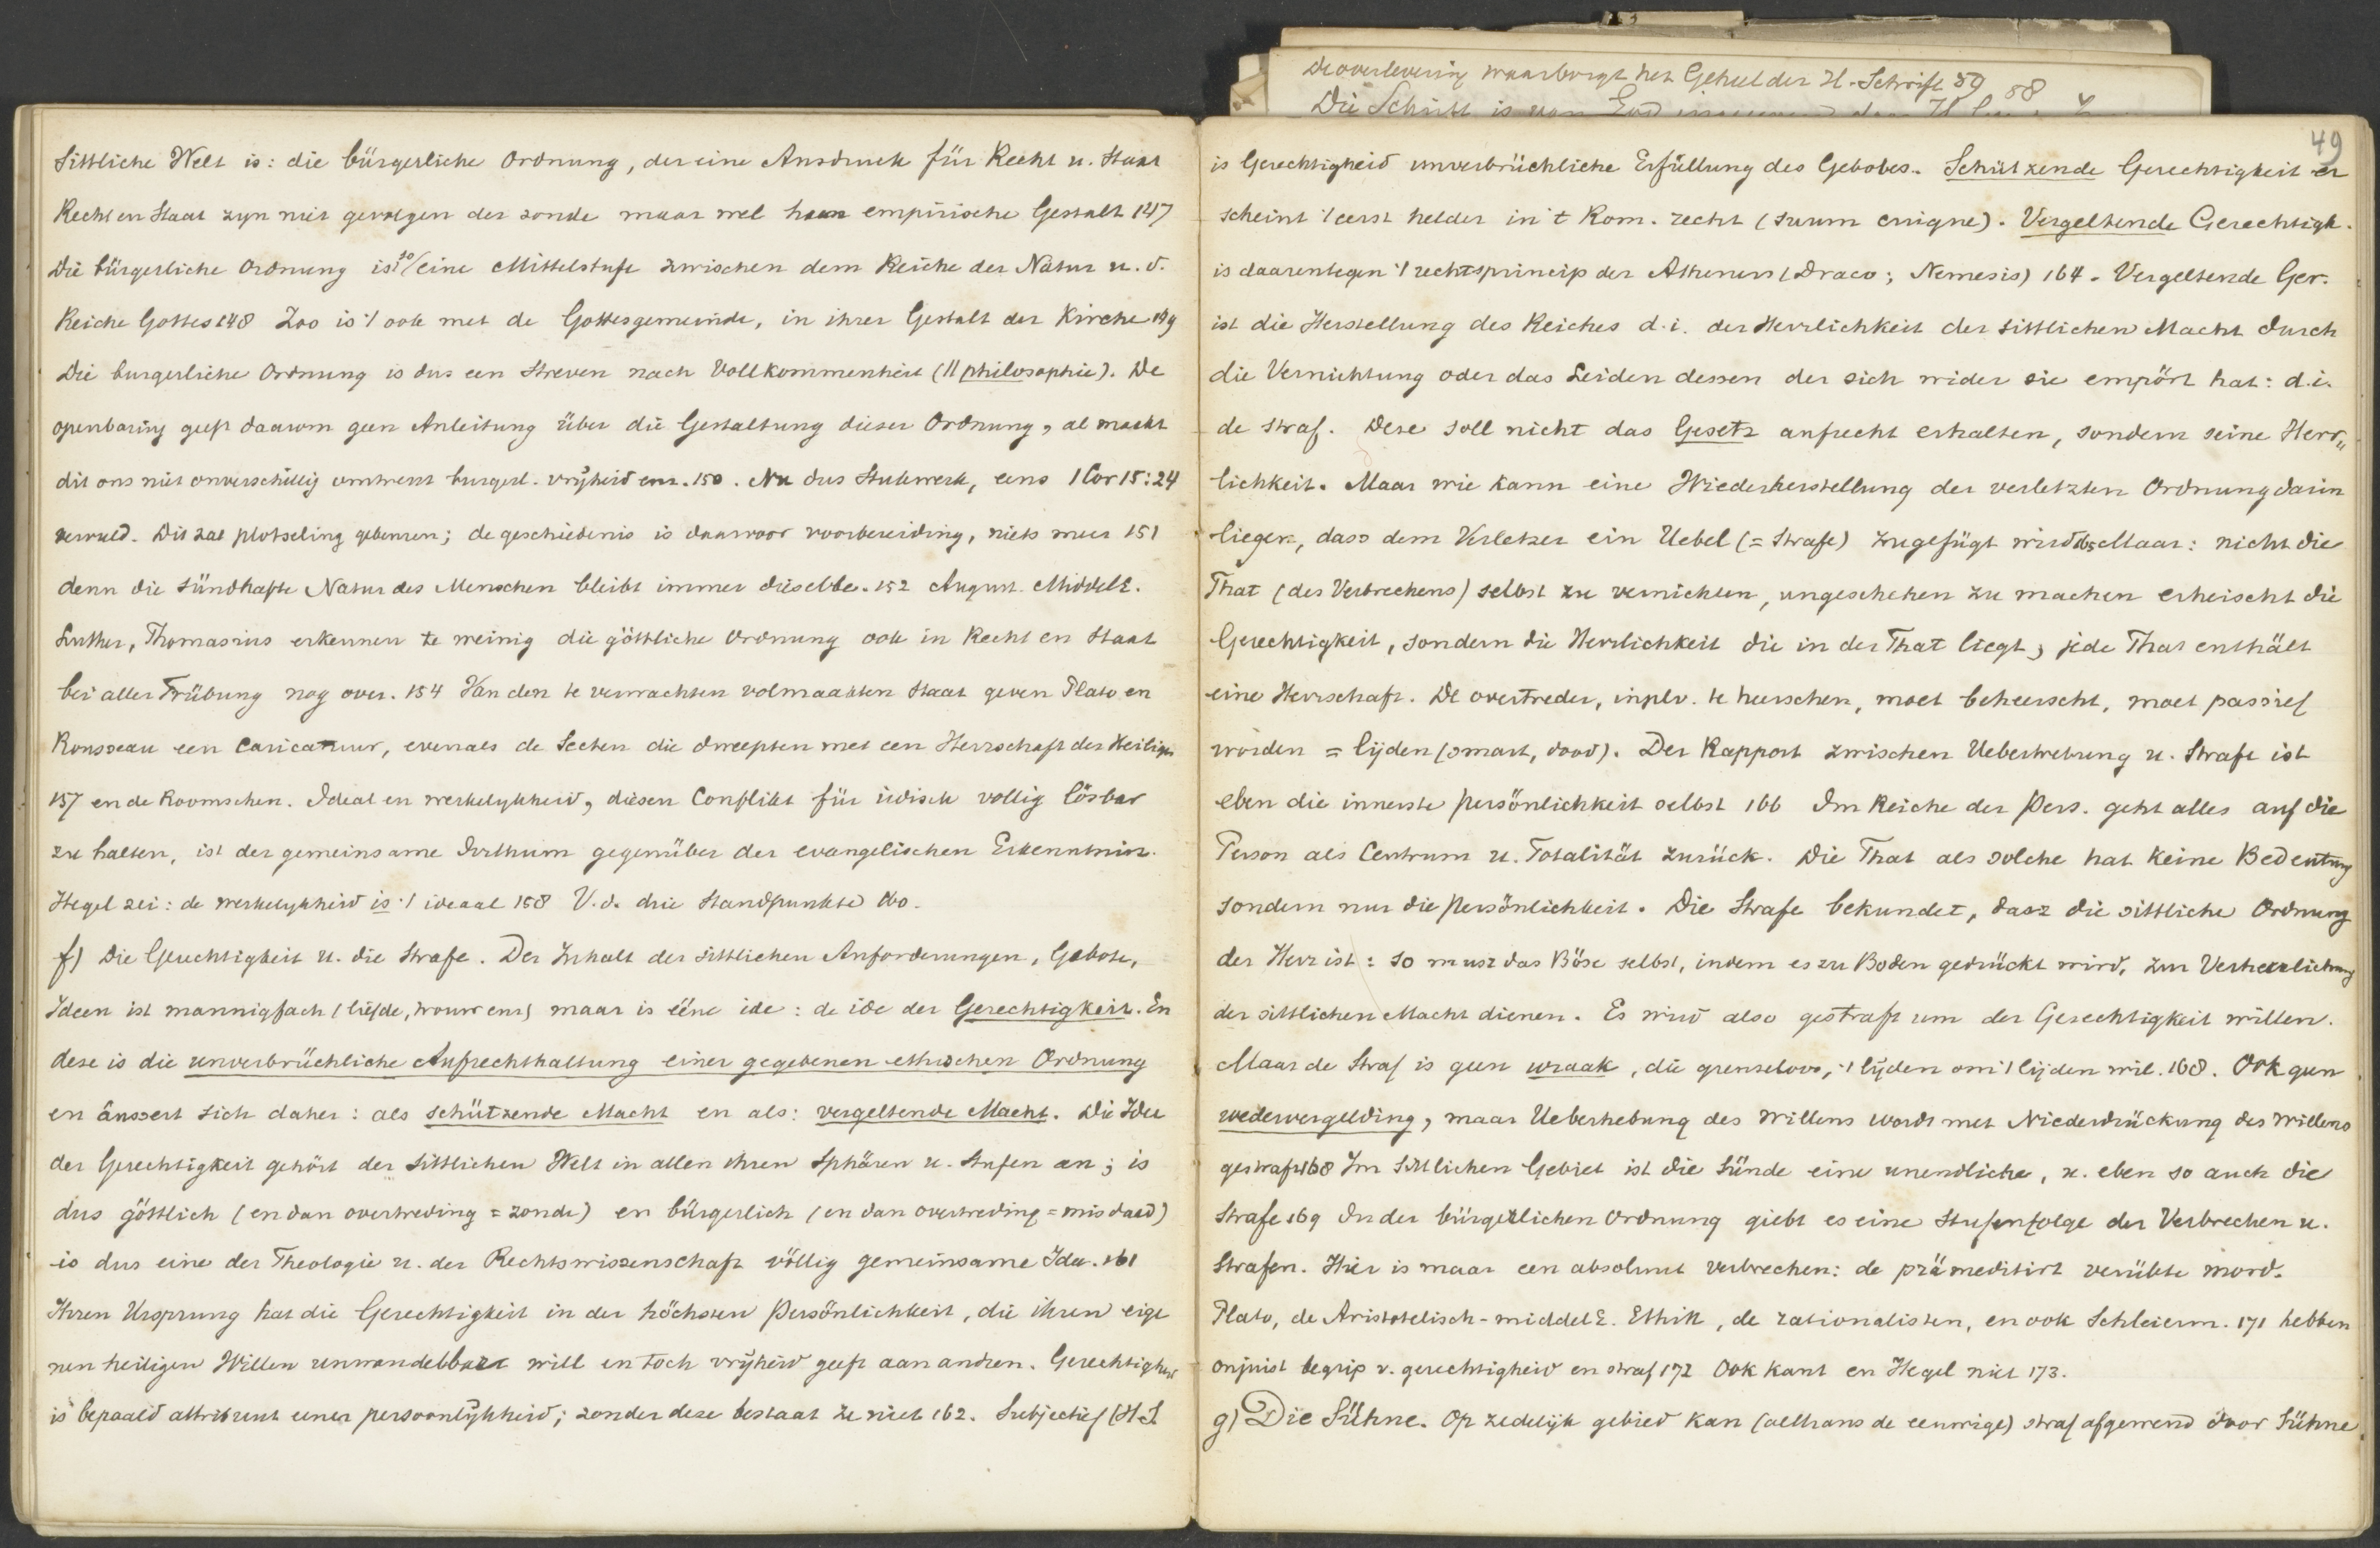 sittliche Welt is: die bürgerliche Ordnung, der eine Ausdruck für Recht u. Staat
Recht en Staat zyn niet gevolgen der zonde maar wel haar empirische Gestalt 147
Die bürgerliche Ordnung is so/ eine Mittelstufe zwischen dem Reiche der Natur u. d.
Reiche Gottes 148 Zoo is 't ook met de Gottesgemeinde, in ihrer Gestalt der Kirche 149
Die burgerliche Ordnung is dus een Streven nach Vollkommenheit (|| philosophie). De
openbaring geeft daarom geen Anleitung über die Gestaltung dieser Ordnung, al maakt
dit ons niet onverschillig omtrent burgerl. vrijheid enz. 150. Nu dus Stukwerk, eens 1 Cor 15:24
vervuld. Dit zal plotseling gebeuren; de geschiedenis is daarvoor voorbereiding, niets meer 151
denn die sündhafte Natur des Menschen bleibt immer dieselbe. 152 August. Middele.
Luther, Thomasius erkennen te weinig die göttliche Ordnung ook in Recht en Staat
bei aller Trübung nog over. 154 Van den te verwachten volmaakten Staat geven Plato en
Rousseau een Caricatuur, evenals de Secten die dweepten met een Herrschaft der Heiligen
157 en de Roomschen. Ideal en werkelykheid, diesen Conflikt für irdisch vollig lösbar
zu halten, ist der gemeinsame Irrthum gegenüber der evangelischen Erkenntnin.
Hegel zei: de werkelykheid is 't ideaal 158 V.d. drie Standpunkte 160.
f) Die Gerechtigkeit u. die Strafe. Der Inhalt der sittlichen Anforderungen, Gebote,
Ideen ist mannigfach (liefde, trouw enz) maar is ééne idee: de idee der Gerechtigkeit. En
deze is die unverbrüchliche Aufrechthaltung einer gegebenen ethischen Ordnung
en äussert sich daher: als schützende Macht en als: vergeltende Macht. Die Idee
der Gerechtigkeit gehört der sittlichen Welt in allen ihren Sphären u. Stufen an; is
dus göttlich (en dan overtreding = zonde) en bürgerlich (en dan overtreding = misdaad)
is dus eine der Theologie u. der Rechtswissenschaft völlig gemeinsame Idee. 161
Ihren Ursprung hat die Gerechtigkeit in der höchsten Persönlichkeit, die ihren eige
nen heiligen Willen unwandelbar will en toch vrijheid geeft aan andren. Gerechtigheid
is bepaald attribuut eener persoonlijkheid; zonder deze bestaat ze niet 162. Subjectief (H.S.
De overlevering waarborgt het Geheel der H. Schrift 59 58
Die Schrift is van God
49
is Gerechtigheid unverbrüchliche Erfüllung des Gebotes. Schützende Gerechtigkeit er
scheint 't eerst helder in 't Rom. recht (suum cuique). Vergeltende Gerechtigk.
is daarentegen 't rechtsprincip der Atheners (Draco; Nemesis) 164. Vergeltende Ger.
ist die Herstellung des Reiches d.i. der Herrlichkeit der sittlichen Macht durch
die Vernichtung oder das Leiden dessen der sich wider sie empört hat: d.i.
de straf. Deze soll nicht das Gesetz aufrecht erhalten, sondern seine Herr„
lichkeit. Maar wie kann eine Wiederherstellung der verletzten Ordnung darin
liegen, dass dem Verletzer ein Uebel (= Strafe) zugefügt wird 165 Maar: nicht die
That (des Verbrechens) selbst zu vernichten, ungeschehen zu machen erheischt die
Gerechtigkeit, sondern die Herrlichkeit die in der That liegt, jede That enthält
eine Herrschaft. De overtreder, inplv. te heerschen, moet beheerscht, moet passief
worden = lijden (smart, dood). Der Rapport zwischen Uebertretung u. Strafe ist
eben die innerste Persönlichkeit selbst 166 Im Reiche der Pers. geht alles auf die
Person als Centrum u. Totalität zurück. Die That als solche hat keine Bedeutung
sondern nur die Persönlichkeit. Die Strafe bekundet, dasz die sittliche Ordnung
der Herr ist: so musz das Böse selbst, indem es zu Boden gedrückt wird, zur Verherrlichung
der sittlichen Macht dienen. Es wird also gestraft um der Gerechtigkeit willen.
Maar de Straf is geen wraak, die grenseloos, 't lijden om 't lijden wil. 168. Ook geen
wedervergelding, maar Ueberhebung des Willens wordt met Niederdrückung des Willens
gestraft 168 Im sittlichen Gebiet ist die Sünde eine unendliche, u. eben so auch die
Strafe 169 In der bürgerlichen Ordnung giebt es eine Stufenfolge der Verbrechen u.
Strafen. Hier is maar een absoluut verbrechen: de prämeditirt verübte mord.
Plato, de Aristotelisch-middelE. Ethik, de rationalisten, en ook Schleierm. 171 hebben
onjuist begrip v. gerechtigheid en straf 172 Ook Kant en Hegel niet 173.
g) Die Sühne. Op zedelijk gebied kan (althans de eeuwige) straf afgewend door Sühne